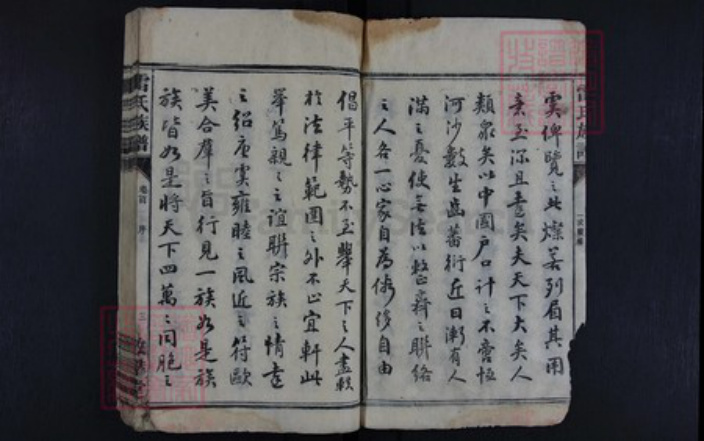 奕俾覽之此燦若列眉其用
意至深且遠矣夫天下大矣人
類眾矣以中國戶口計之不啻恒
河沙數生齒蕃衍近日漸有人
滿之憂使無法以整齊之聯絡
之人各一心家自為俗侈自由
倡平等勢不至舉天下之人盡軼
於法律範圍之外不止宜軒此
舉篤親之誼聯宗族之情遠
之紹唐虞雍睦之風近之符歐
美合羣之旨行見一族如是族
族皆如是將天下四萬之同胞之
雷氏族譜
卷首
序
三